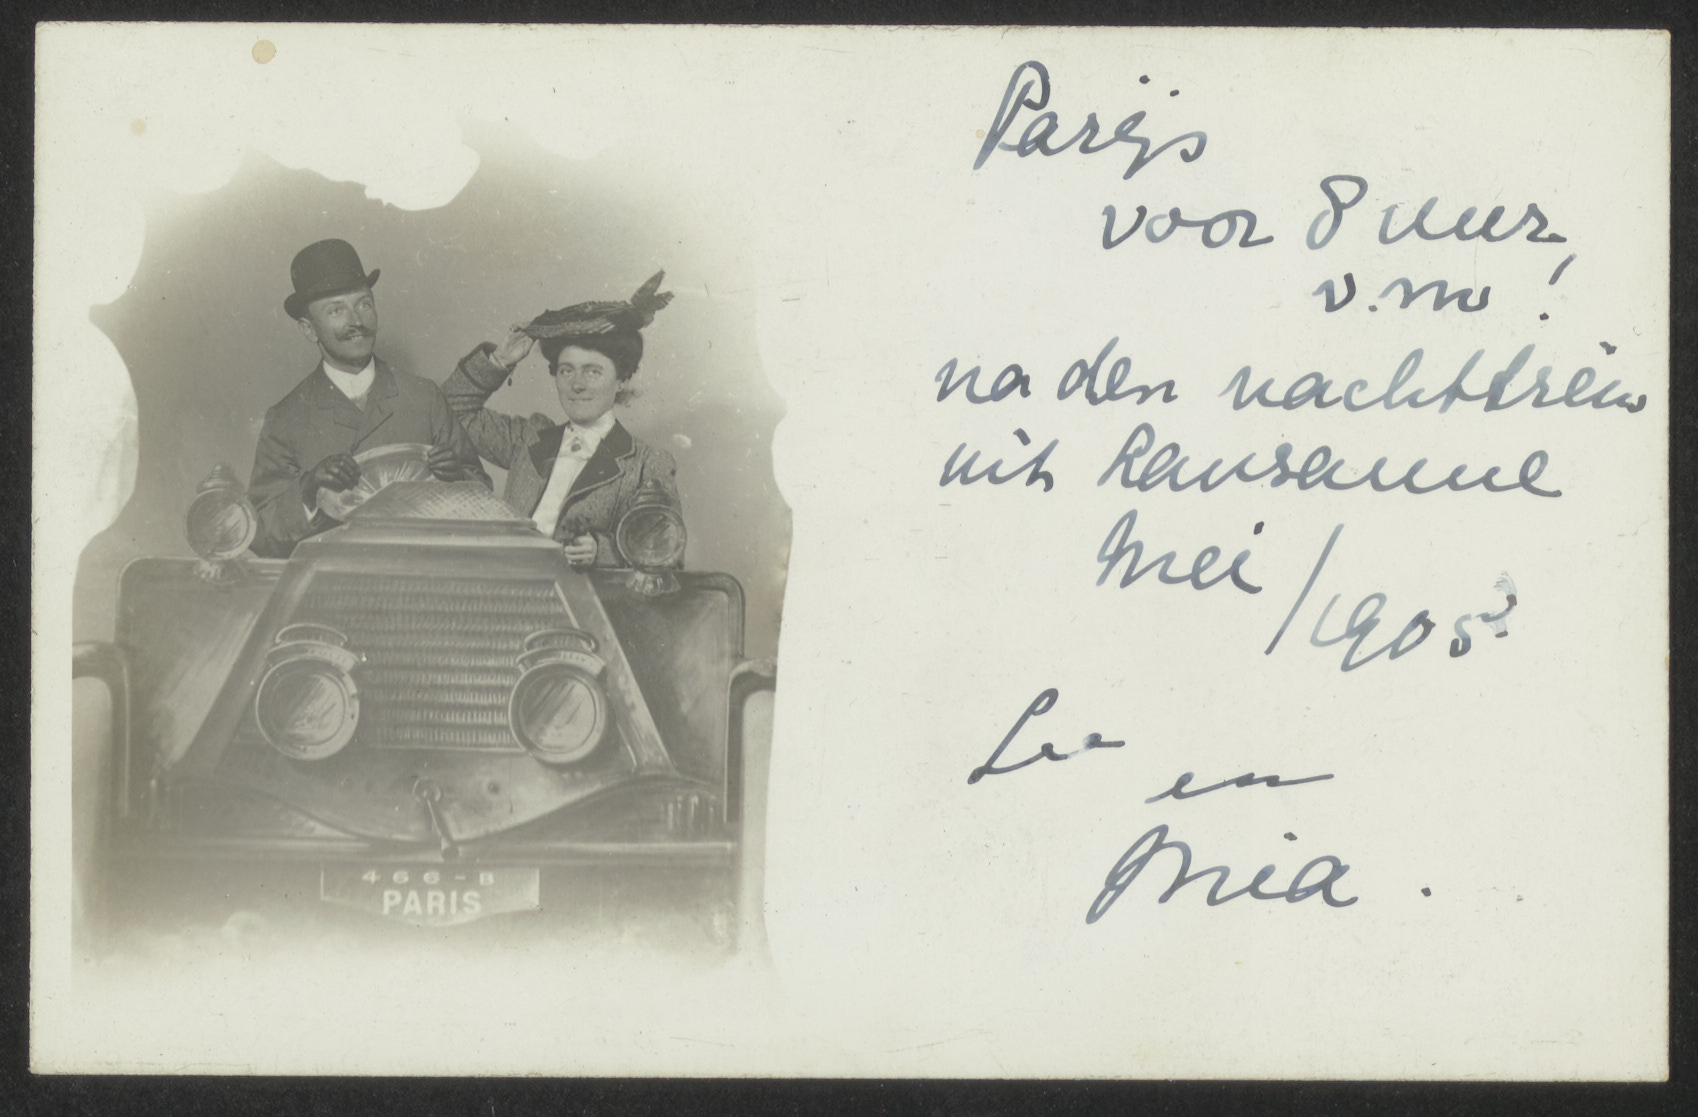 466-B
PARIS
Parijs
voor 8 uur,
v.m!
na den nachttrein
uit Lausanne
Mei / 1905?
en
Mia.